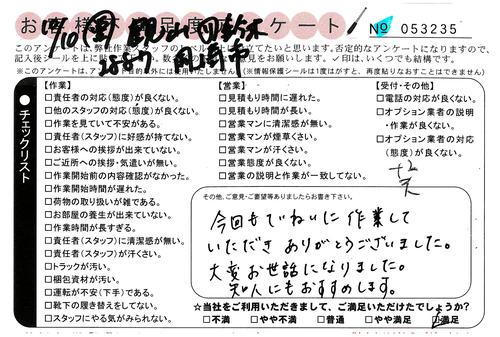 お客様不満足度アンケート
No 053235
このアンケートは、弊社作業スタッフのレベル向上に役立てたいと思います。否定的なアンケートになりますので、
記入後シールを上に貼
意見をお願いします。✓印は、いくつでも結構です。
(※情報保護シールは1度はがすと、再度貼りなおすことはできません)
チェックリスト
【作業】
□責任者の対応(態度)が良くない。
□他のスタッフの対応(態度)が良くない。
□作業を見ていて不安がある。
□責任者(スタッフ)に好感が持てない。
□お客様への挨拶が出来ていない。
□ご近所への挨拶・気遣いが無い。
□作業開始前の内容確認がなかった。
□作業開始時間が遅れた。
□荷物の取り扱いが雑である。
□お部屋の養生が出来ていない。
□作業時間が長すぎる。
□責任者(スタッフ)に清潔感が無い。
□責任者(スタッフ)が汗くさい。
□トラックが汚い。
□梱包資材が汚い。
□運転が不安(下手)である。
□靴下の履き替えをしてない。
□スタッフにやる気がみられない。
【営業】
□見積もり時間に遅れた。
□見積もり時間が長い。
□営業マンに清潔感が無い。
□営業マンが煙草くさい。
□営業マンが汗くさい。
□営業態度が良くない。
□営業の説明と作業が一致してない。
【受付・その他】
□電話の対応が良くない。
□オプション業者の説明
・作業が良くない。
□オプション業者の対応
(態度)が良くない。
その他、ご意見・ご要望等ありましたらお書き下さい。
今回もていねいに作業して
いただきありがとうございました。
大変お世話になりました。
知人にもおすすめします。
☆当社をご利用いただきまして、ご満足いただけたでしょうか?
□不満 □やや不満 □普通 □やや満足 ☑満足